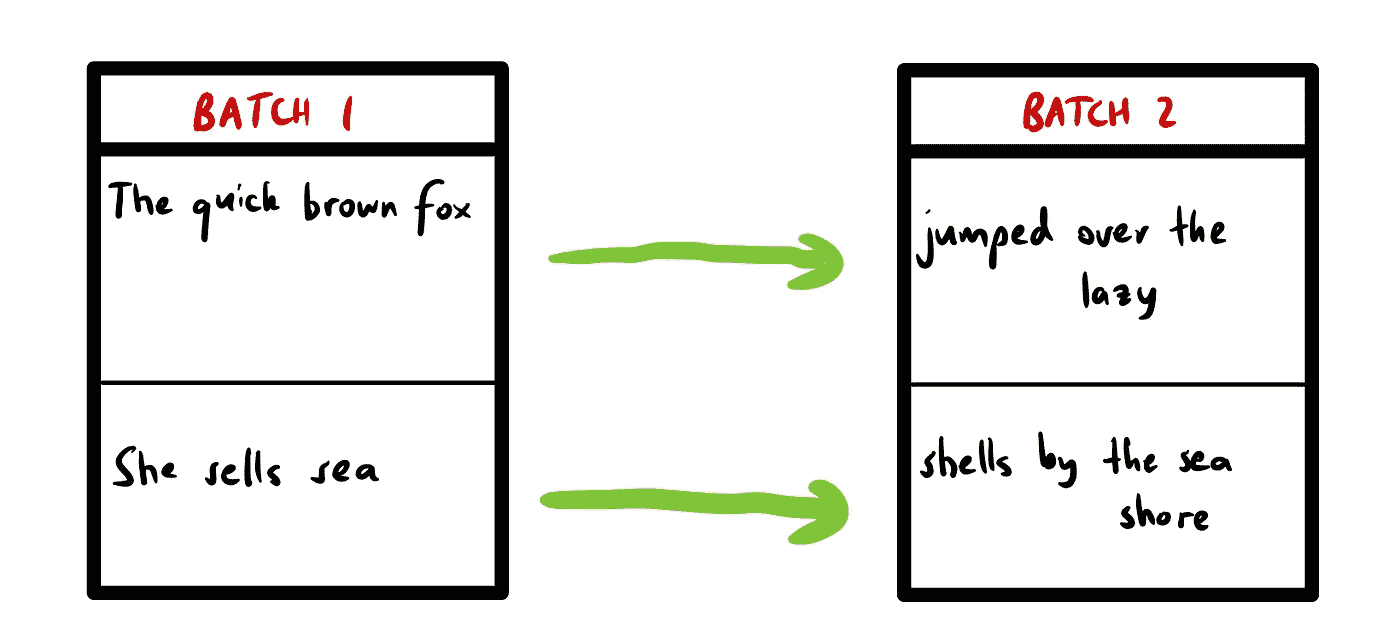 BATCH 1
The quick brown fox
She sells sea
BATCH 2
jumped over the
lazy
shells by the sea
shore